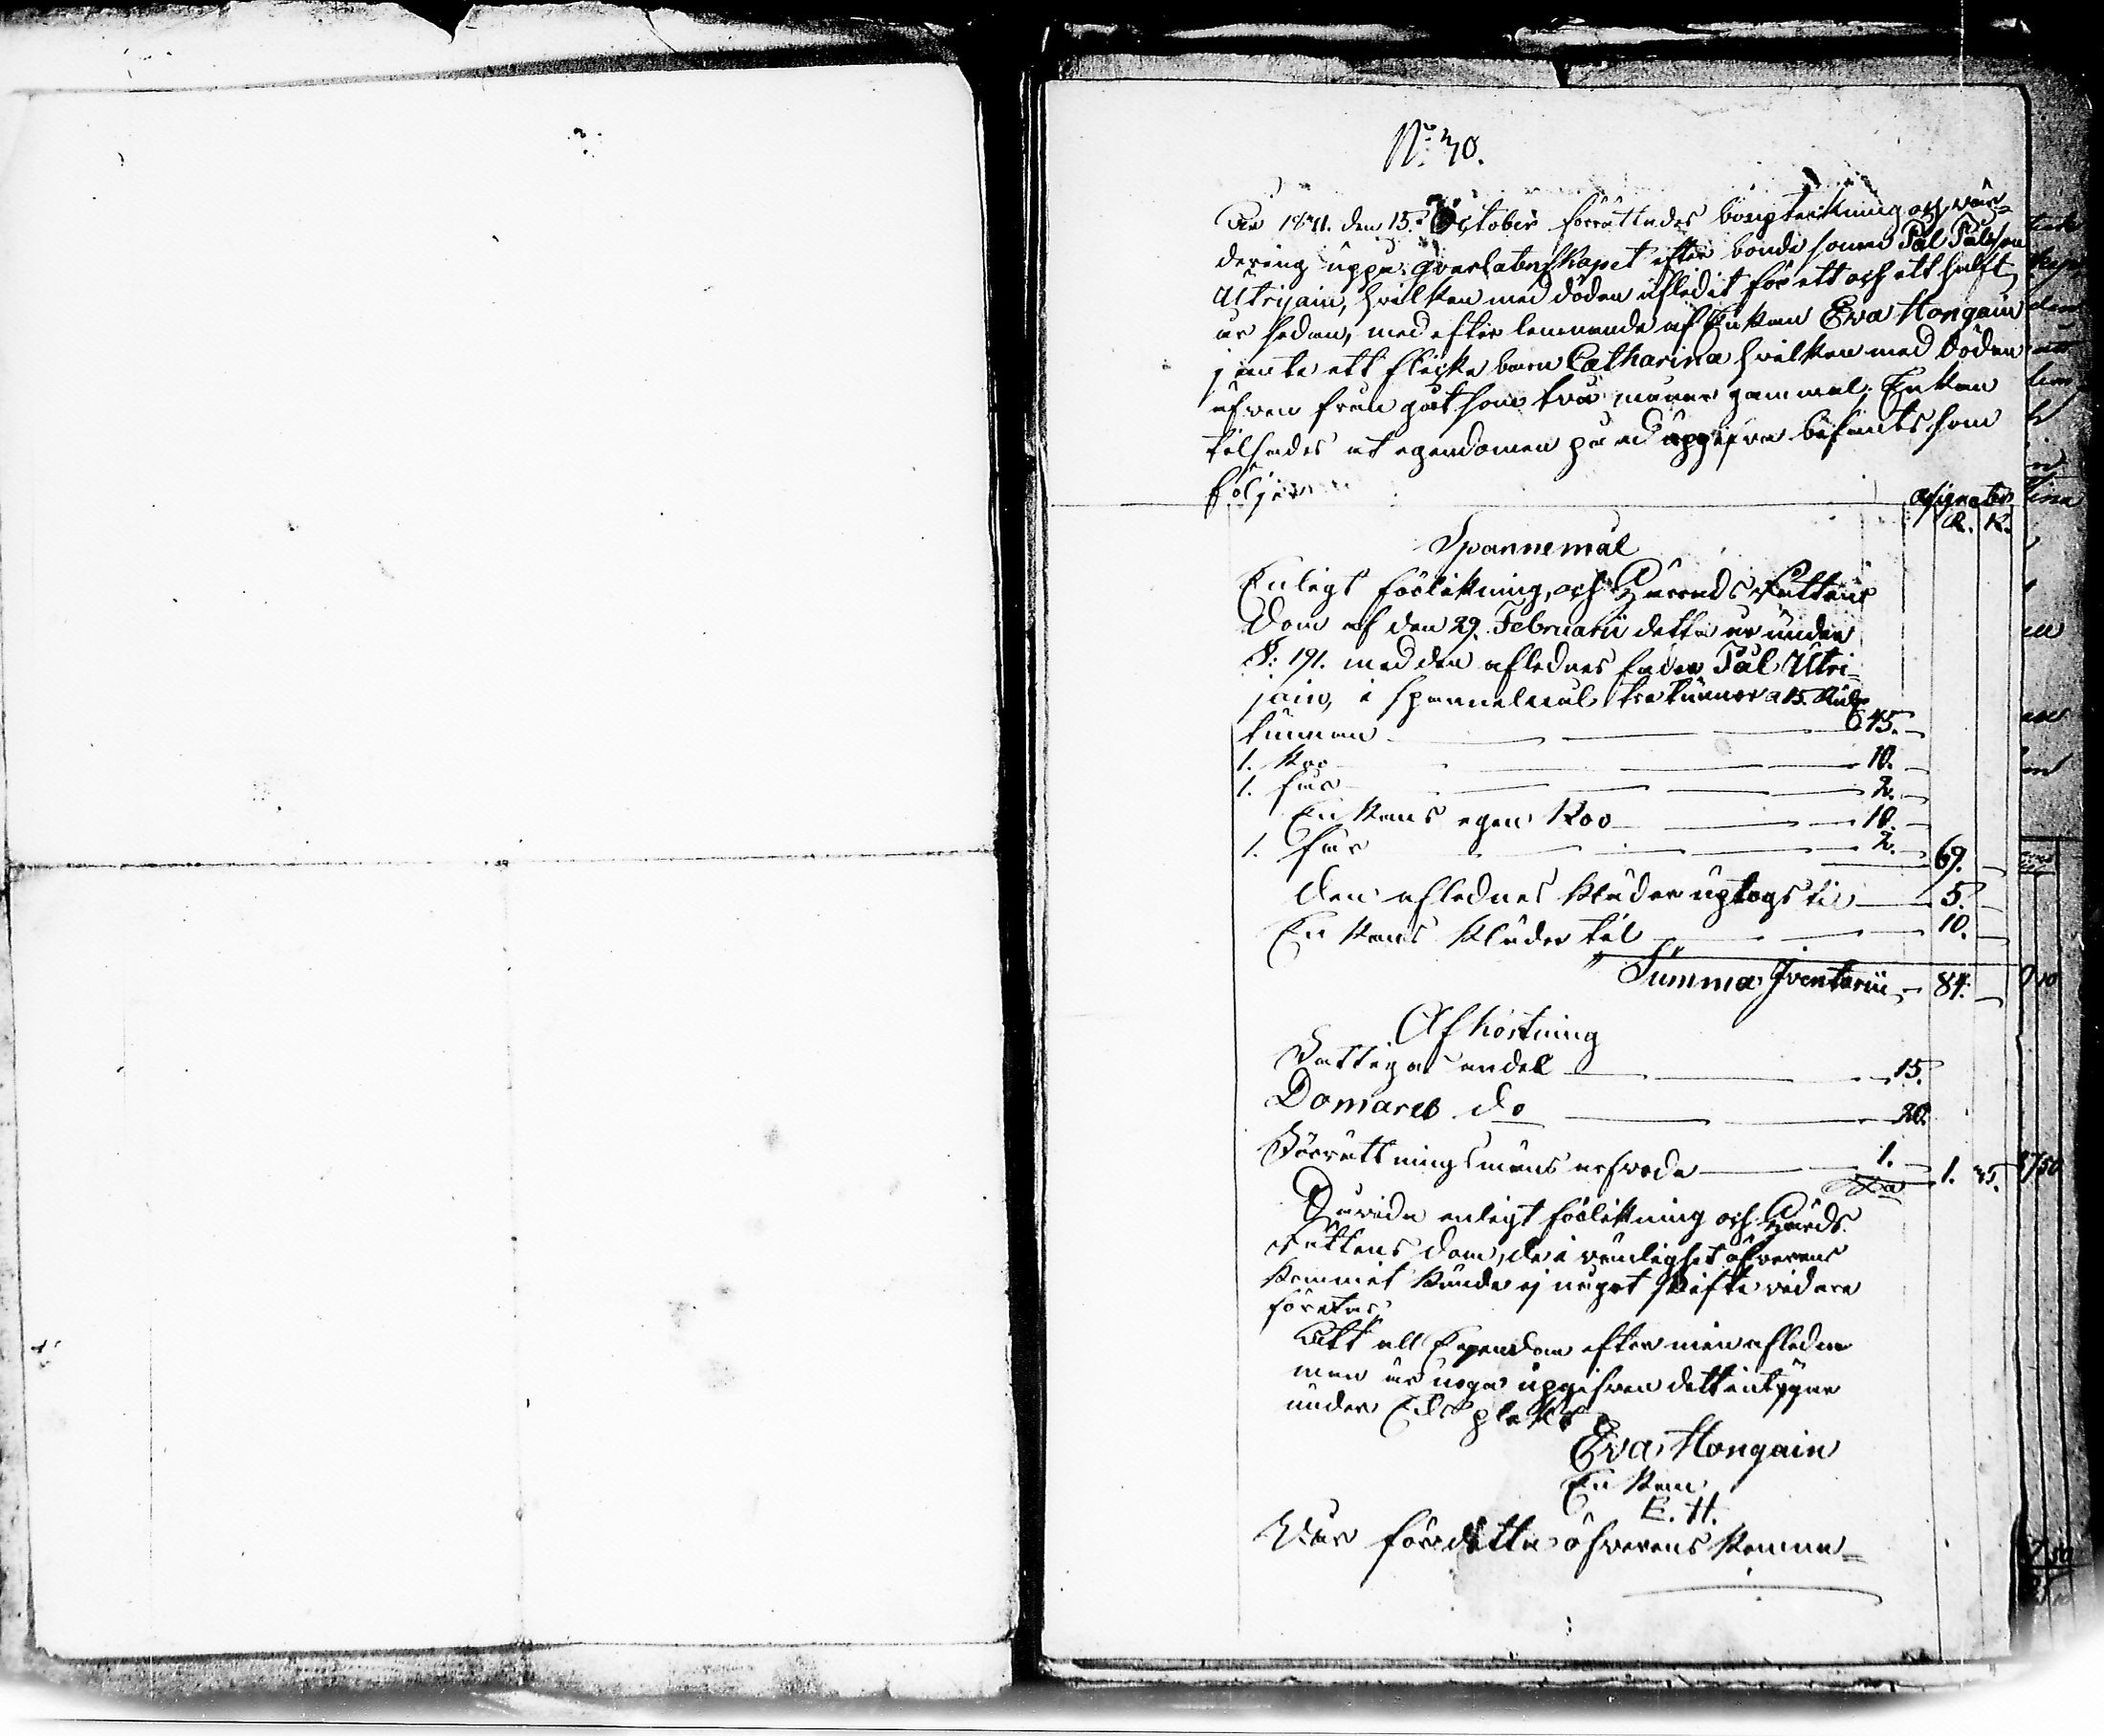 No 70.
År 1841. den 15. October förrättades bouptekning och vär=
dering uppå qvarlatenskapet efter bonde sonen Pål Pålsson
Utriain, hvilken med döden aflidit för ett och ett halft
år sedan, med efter lemnande af Enkan Eva Hongain
jemte ett flicke barn Catharina hvilken med döden
afven från gåt som två månar gammal; Enkan
tilsades at egendomen på ed uppgifva befants som
följer
Silfver
R. K.
Spannemål
Enligt förlikning, och Härads Rättens
Dom af den 29. Februarii detta år under
§: 191. med den aflednes fader Pål Utri=
jain, i spannemål tre tunnor a 15. Rub
tunnan 45.
1. Koo 10.
1. får 2.
Enkans egen Koo 10.
1. får 2. 69.
den aflednes kläder uptogs til 5.
Enkans kläder til 10.
Summa Iventarii 84.
Afkortning
Fattigas andel 15.
Domares do 20.
Förrättningsmäns arfvode 1. 1. 35.
Såvida enligt förlikning och Härads
Rättens dom, de i vänlighet öfverens
kommit kunde ej något skifte vidare
företas
Att all Egendom efter min afledne
man är noga uppgifven dett intygar
under Eds plikt
Eva Hongain
Enkan
E. H.
Vår för detta öfverens komne=